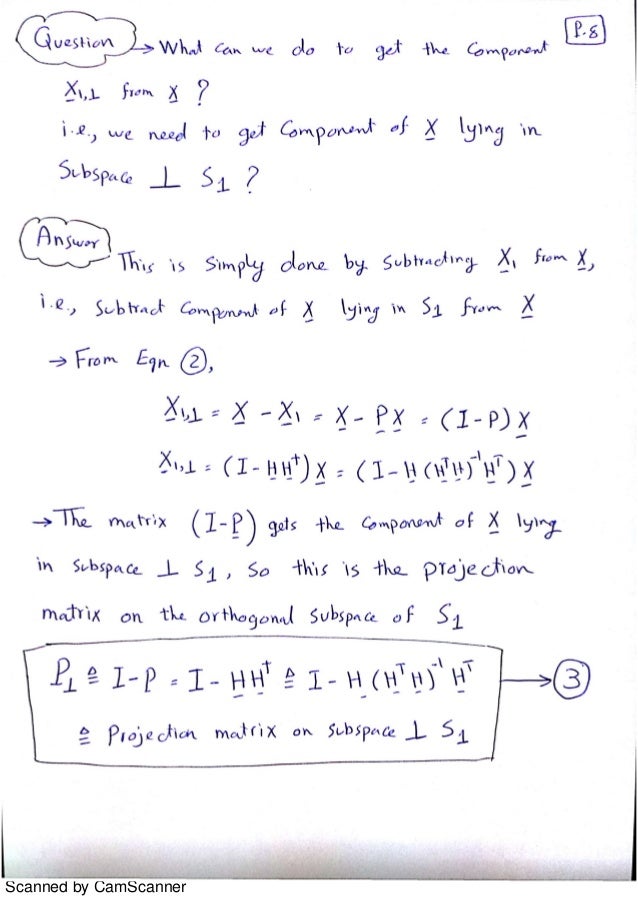 P.8
Question → What can we do to get the Component
X₁,⊥ from X ?
i.e., we need to get Component of X lying in
Subspace ⊥ S1 ?
Answer
This is simply done by subtracting X₁ from X,
i.e., subtract Component of X lying in S1 from X
→ From Eqn ②,
X₁,⊥ = X - X₁ = X - PX = (I-P) X
X₁,⊥ = (I - HH†) X = (I - H (HᵀH)⁻¹Hᵀ) X
→ The matrix (I-P) gets the Component of X lying
in subspace ⊥ S1, So this is the projection
matrix on the orthogonal subspace of S1
P⊥ ≜ I-P = I - HH† ≜ I - H (HᵀH)⁻¹ Hᵀ → ③
≜ Projection matrix on subspace ⊥ S1
Scanned by CamScanner